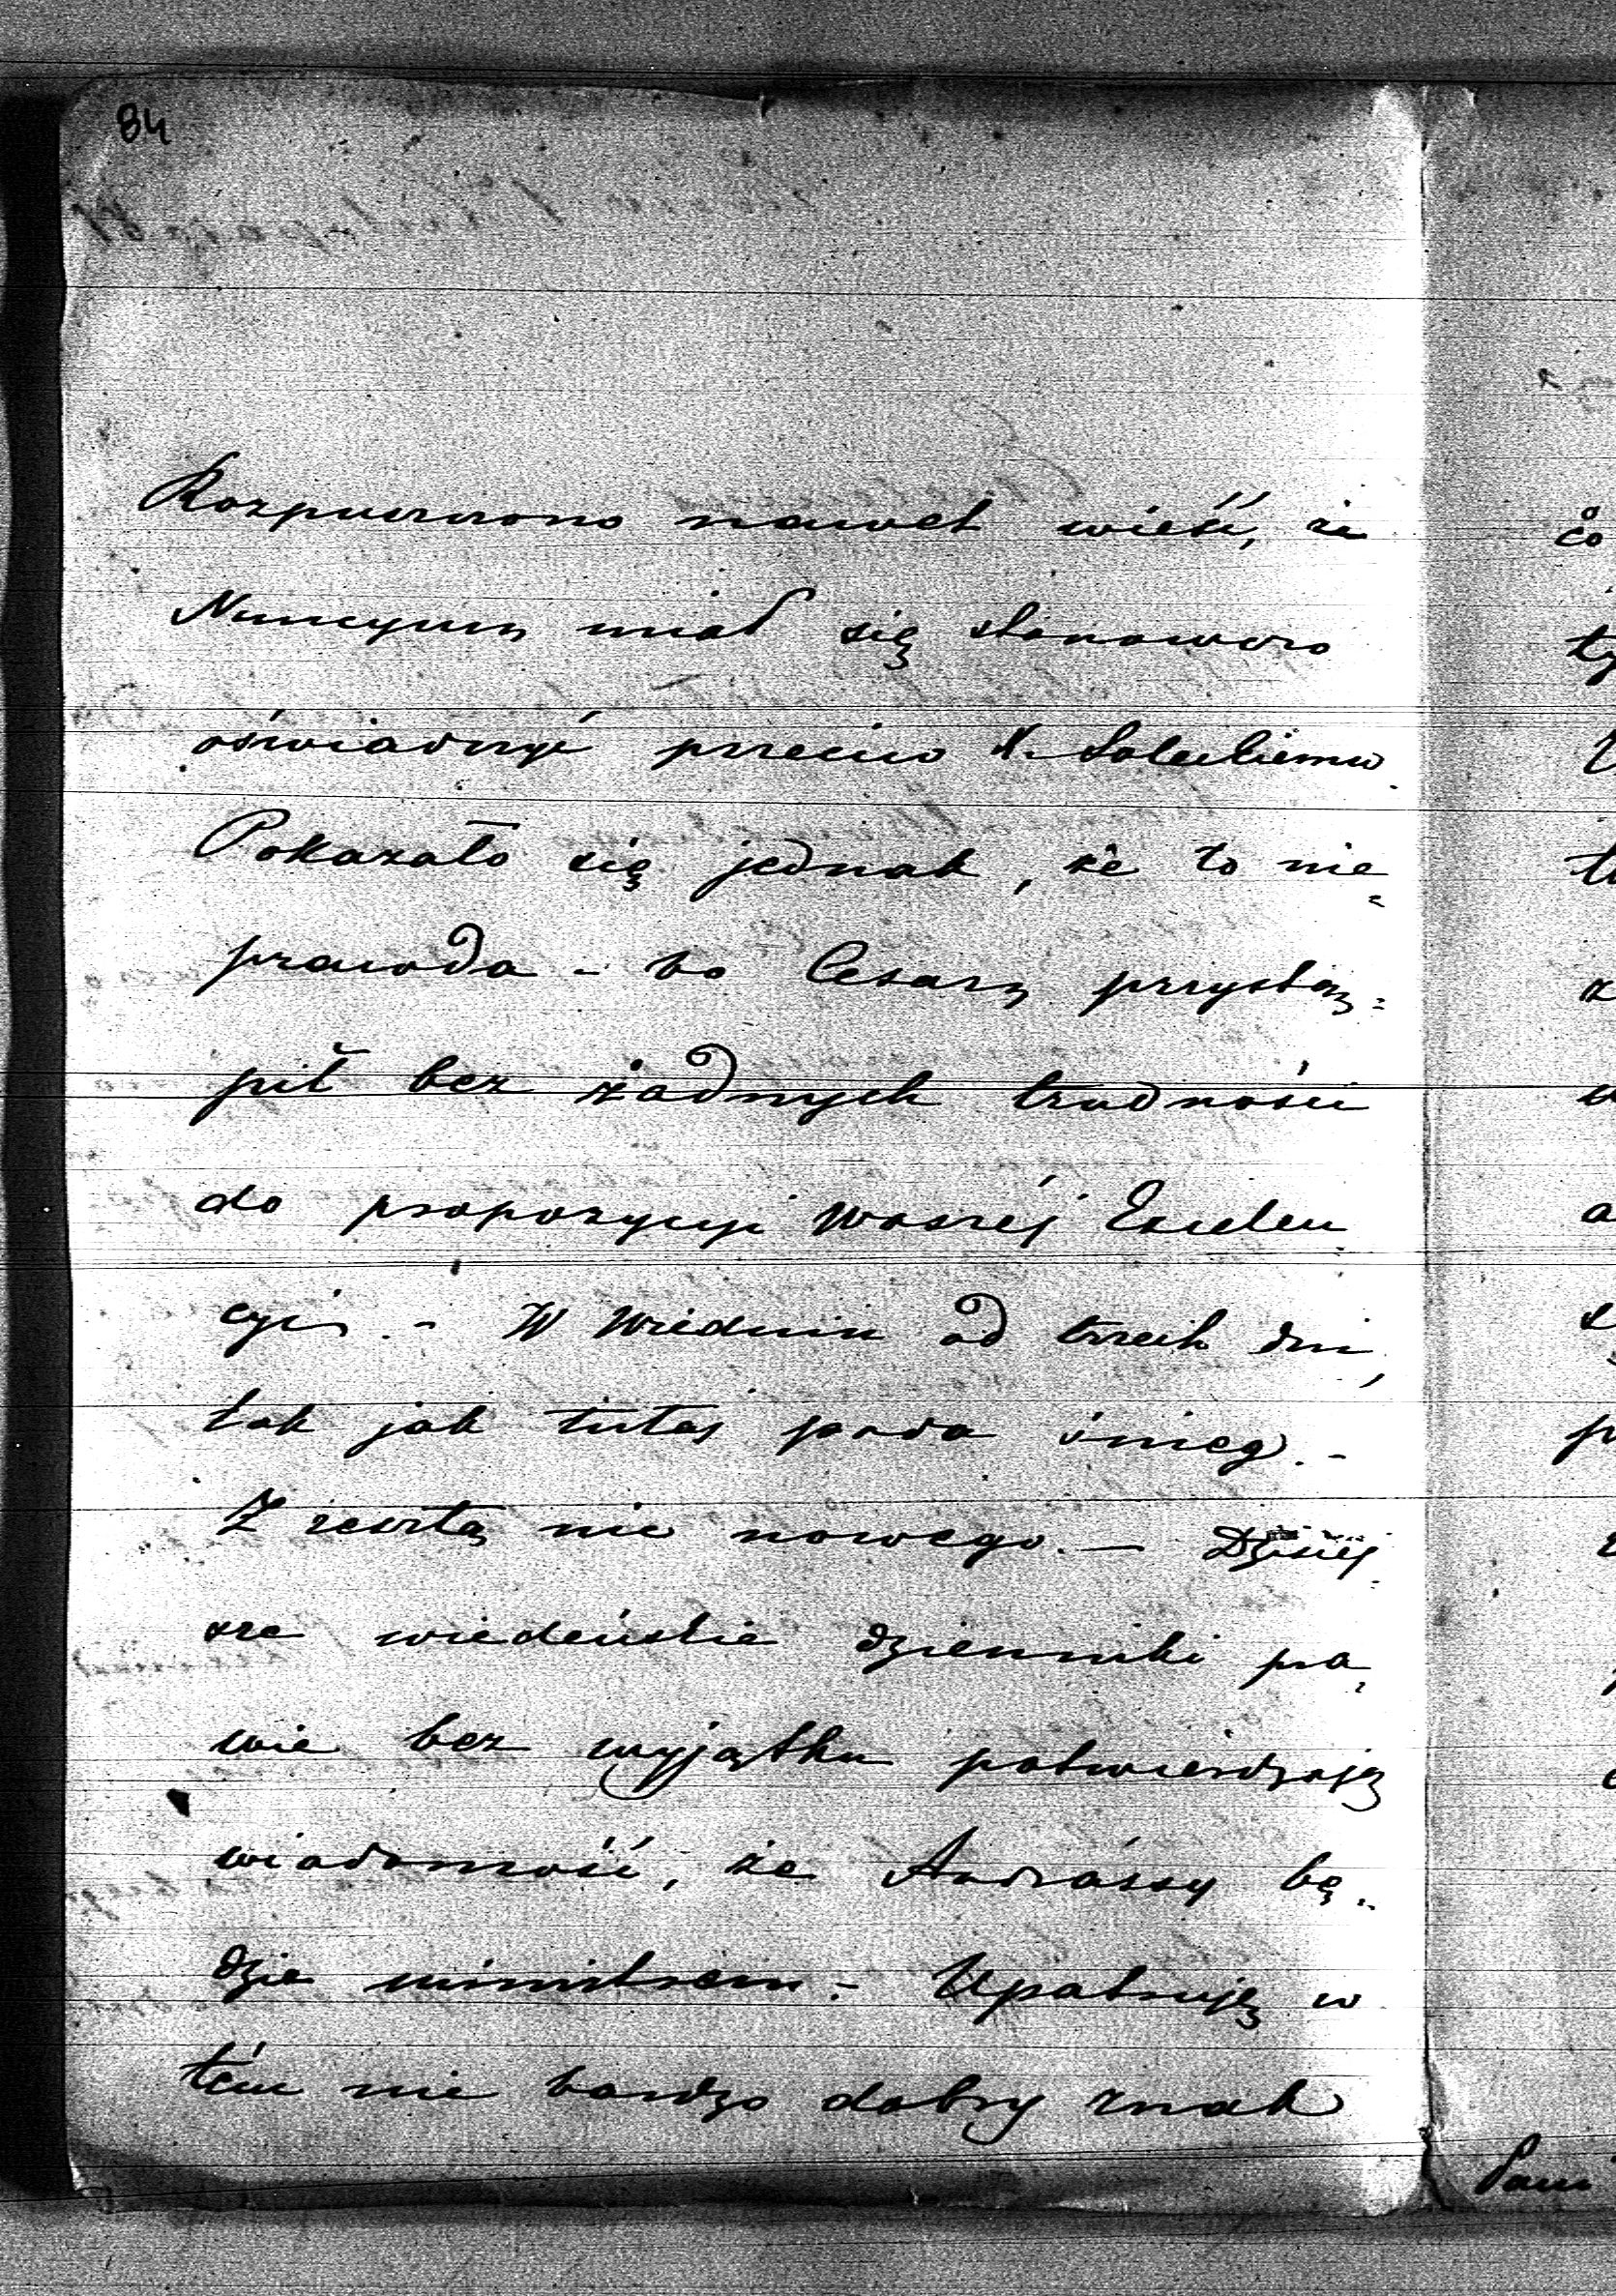 84
Rozpuszczono nawet wieść, że
Nuncyusz miał się stanowczo
oświadczyć przeciw X. Soleckiemu
Pokazało się jednak, że to nie
prawda - bo Cesarz przystą=
pił bez żadnych trudności
do propozycyi Waszéj Excelen
cyi. - W Wiedniu od trzech dni,
tak jak tutaj pada śnieg. -
Z resztą nic nowego. - Dzisiej
sze wiedeńskie dzienniki pra
wie bez wyjątku potwierdzają
wiadomość, że Andrássy bę=
dzie ministrem. - Upatrują w
tém nie bardzo dobry znak